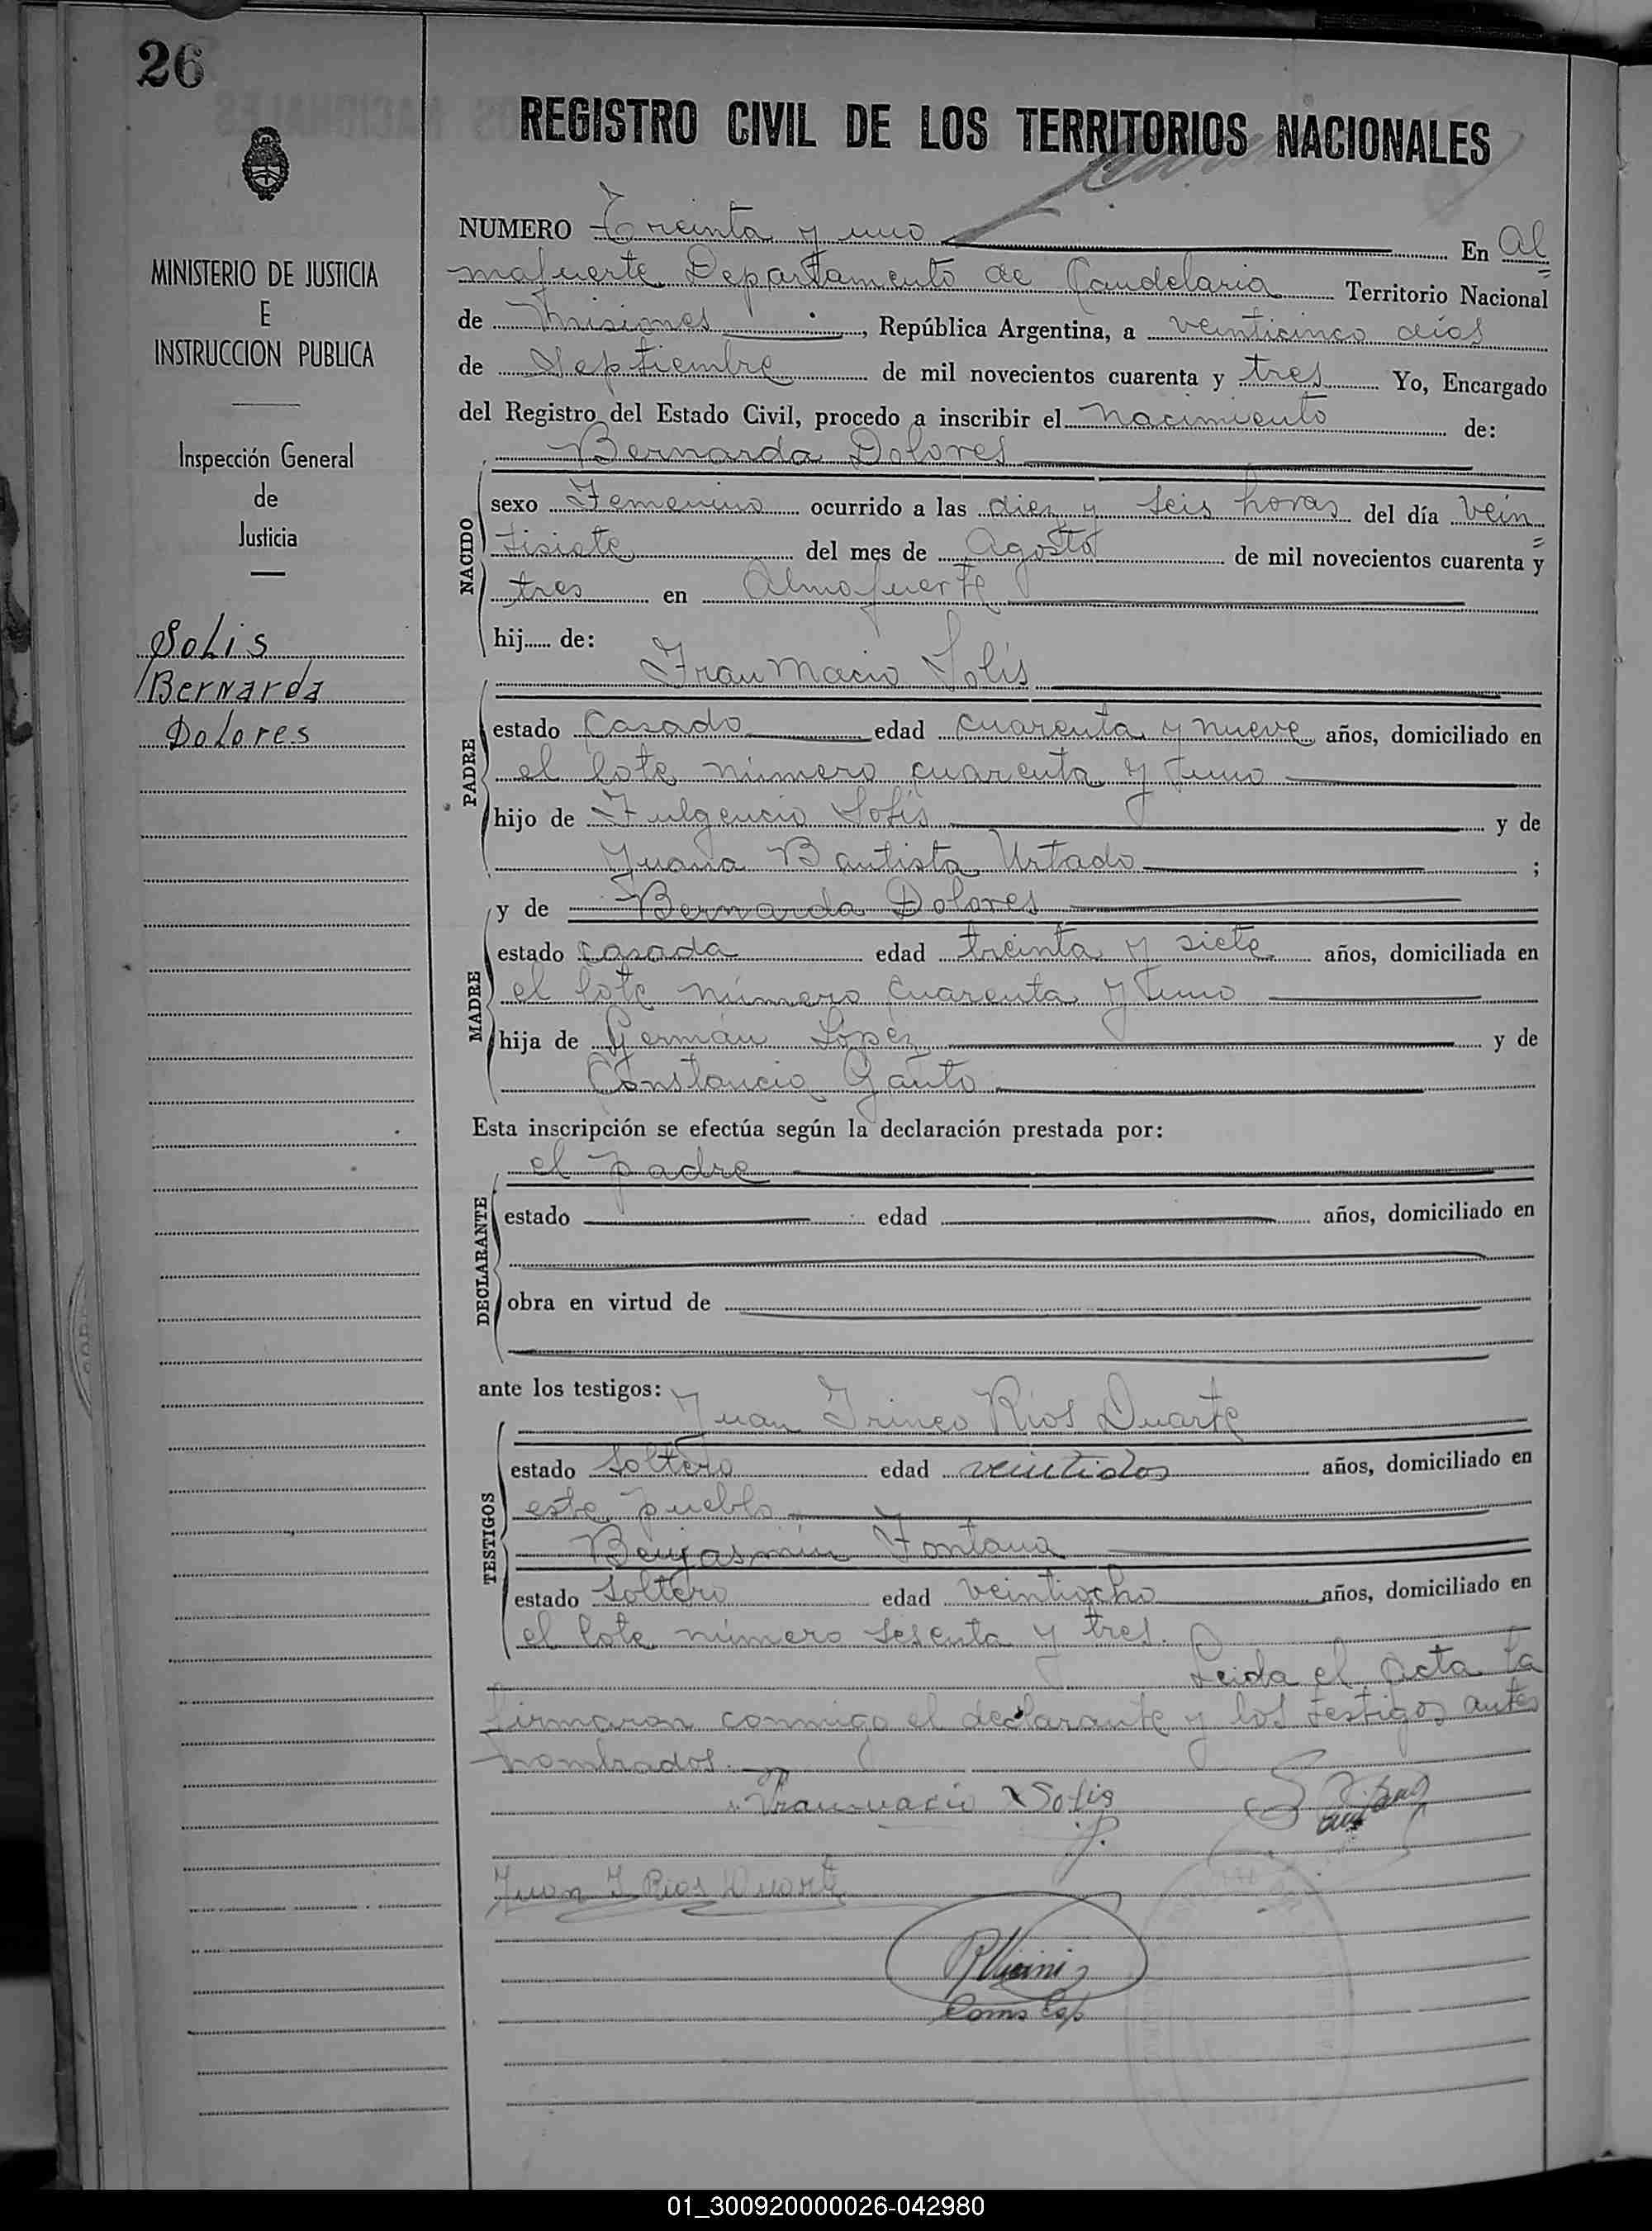 26
REGISTRO CIVIL DE LOS TERRITORIOS NACIONALES
MINISTERIO DE JUSTICIA
E
INSTRUCCION PUBLICA
Inspección General
de
Justicia
Solis
Bernarda
Dolores
NUMERO Treinta y uno En Al=
mafuerte Departamento de Candelaria Territorio Nacional
de Misiones, República Argentina, a veinticinco días
de Septiembre de mil novecientos cuarenta y tres Yo, Encargado
del Registro del Estado Civil, procedo a inscribir el Nacimiento de:
Bernarda Dolores
NACIDO
sexo Femenino ocurrido a las diez y seis horas del día vein=
tisiete del mes de Agosto de mil novecientos cuarenta y
tres en Almafuerte
hij...... de:
Fran Macio Solís
PADRE
estado Casado edad cuarenta y nueve años, domiciliado en
el lote número cuarenta y uno
hijo de Fulgencio Solís y de
Juana Bautista Urtado ;
y de Bernarda Dolores
MADRE
estado casada edad treinta y siete años, domiciliada en
el lote número cuarenta y uno
hija de Germán López y de
Constancia Gauto
Esta inscripción se efectúa según la declaración prestada por:
el padre
DECLARANTE
estado edad años, domiciliado en
obra en virtud de
ante los testigos:
Juan Irineo Rios Duarte
TESTIGOS
estado soltero edad veintidos años, domiciliado en
este pueblo
Benjasmín Fontana
estado soltero edad veintiocho años, domiciliado en
el lote número sesenta y tres.
Leida el acta la
firmaron conmigo el declarante y los testigos antes
nombrados.
Franmacio Solis
Juan I Rios Duarte
R Vicini
01_300920000026-042980